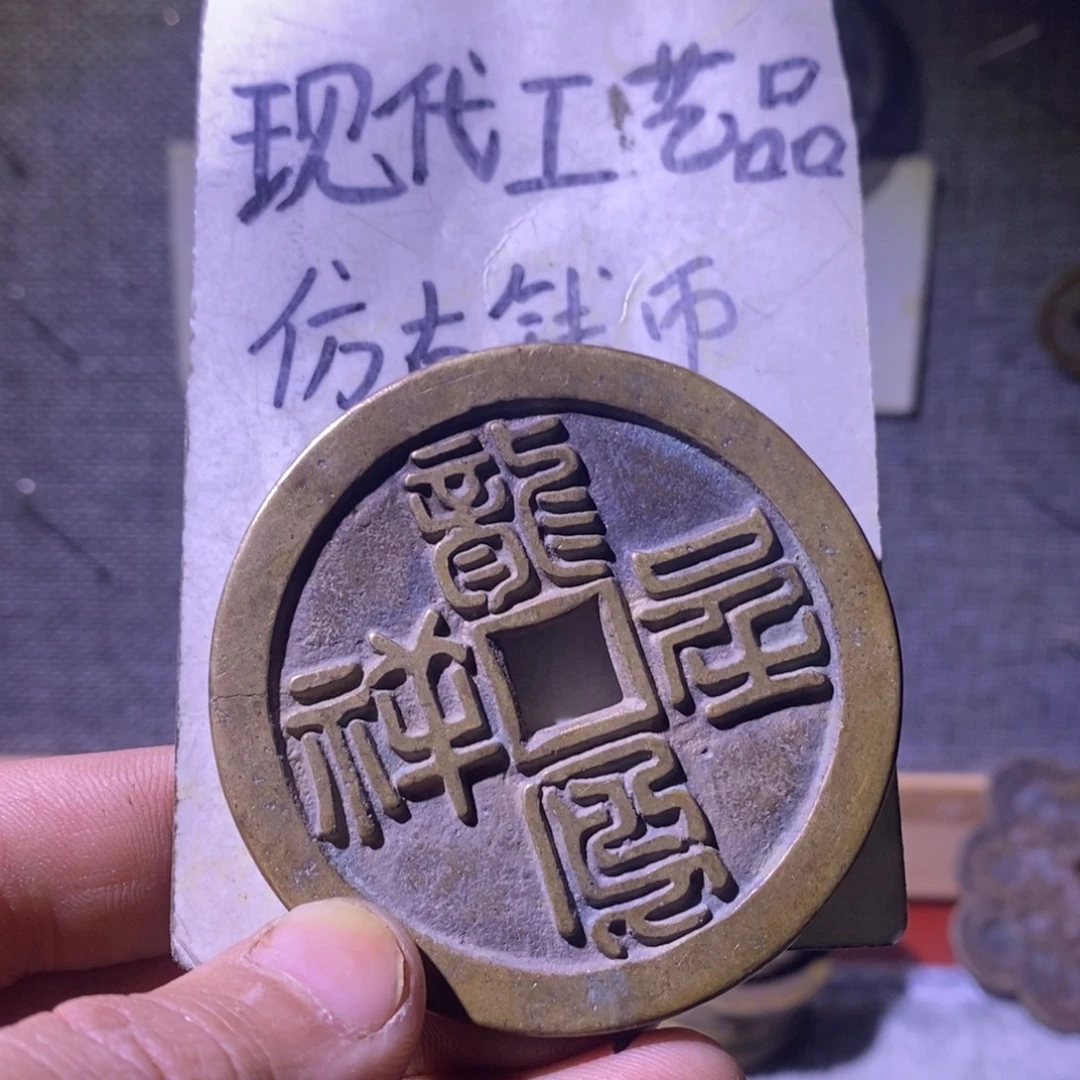 现代工艺品
仿古钱币
龍鳳呈祥